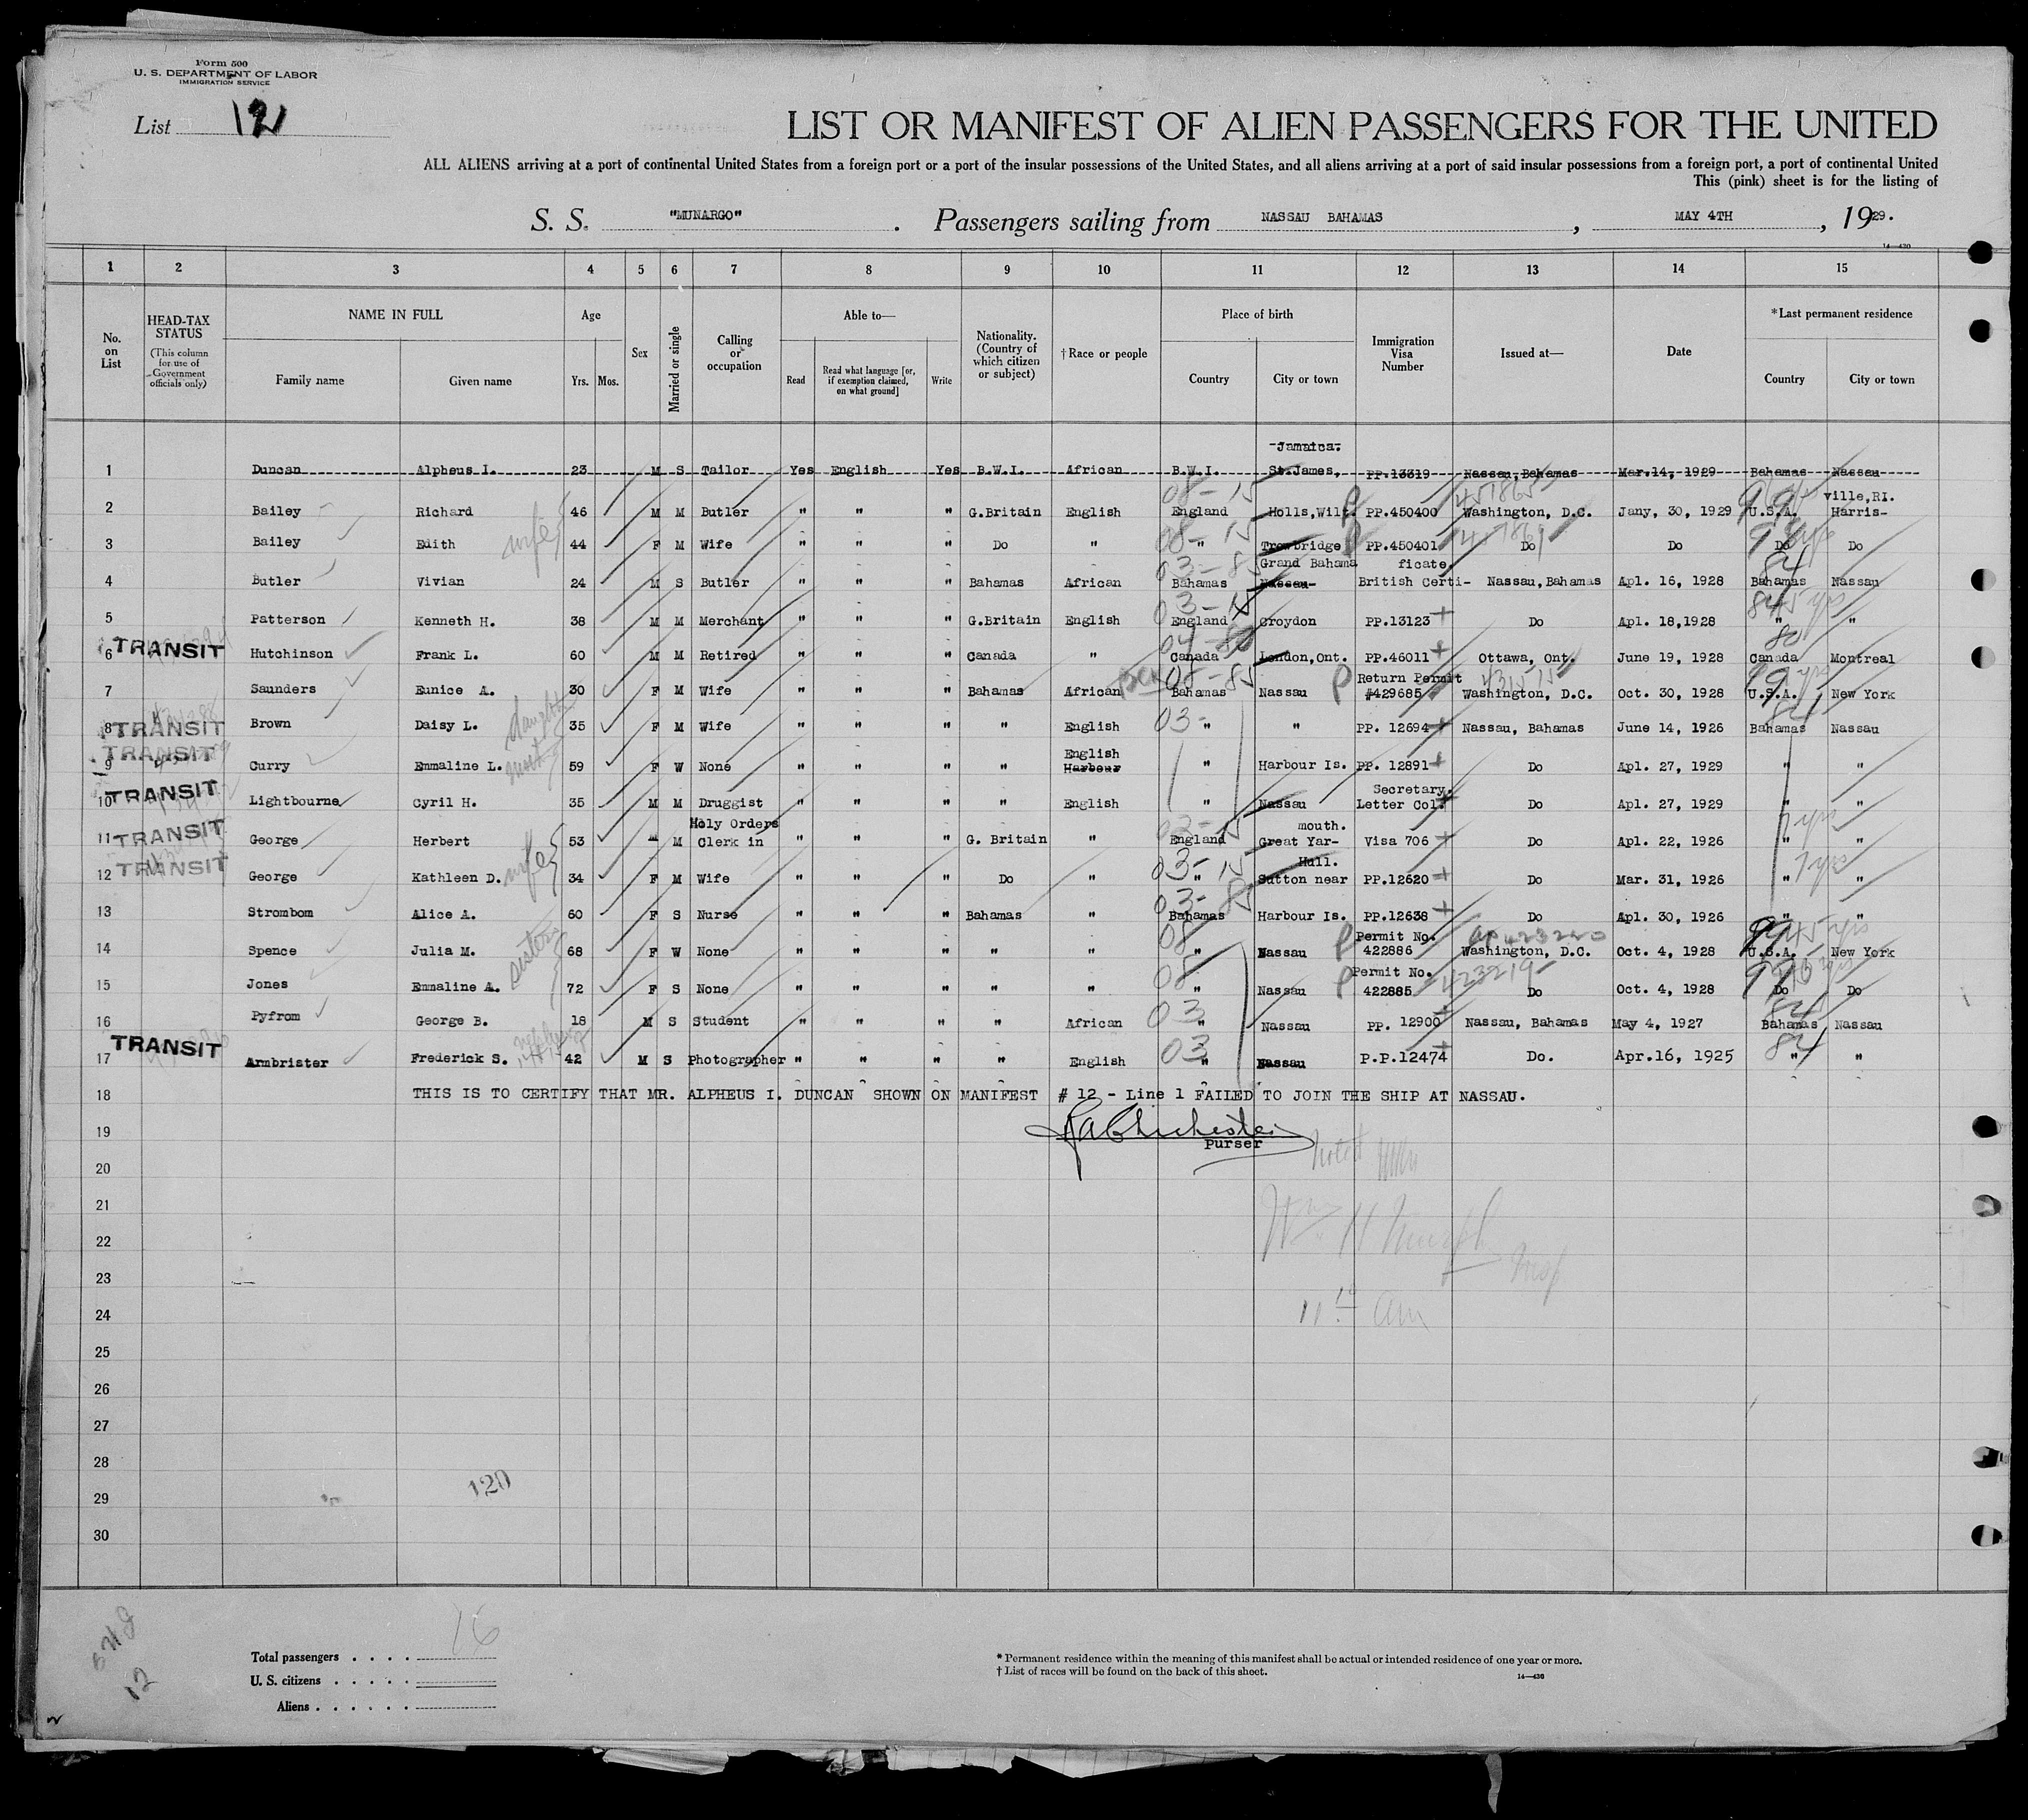 Form 500
U. S. DEPARTMENT OF LABOR
IMMIGRATION SERVICE
List 12
LIST OR MANIFEST OF ALIEN PASSENGERS FOR THE UNITED
ALL ALIENS arriving at a port of continental United States from a foreign port or a port of the insular possessions of the United States, and all aliens arriving at a port of said insular possessions from a foreign port, a port of continental United
This (pink) sheet is for the listing of
S. S. "MUNARGO". Passengers sailing from NASSAU BAHAMAS, MAY 4TH, 1929.
14—430
1 2 3 4 5 6 7 8 9 10 11 12 13 14 15
No. on List
HEAD-TAX STATUS
(This column for use of Government officials only)
NAME IN FULL
Family name Given name
Age
Yrs. Mos.
Sex
Married or single
Calling or occupation
Able to—
Read
Read what language [or, if exemption claimed, on what ground]
Write
Nationality. (Country of which citizen or subject)
†Race or people
Place of birth
Country City or town
Immigration Visa Number
Issued at—
Date
*Last permanent residence
Country City or town
-Jamaica-
1 Duncan Alpheus I. 23 M S Tailor Yes English Yes B.W.I. African B.W.I. St.James, PP.13319 Nassau,Bahamas Mar.14, 1929 Bahamas Nassau
08-15 451865 ville,RI.
2 Bailey Richard 46 M M Butler " " " G.Britain English England Holls,Wilt. PP.450400 Washington, D.C. Jany, 30, 1929 U.S.A. Harris-
wife 08-15
3 Bailey Edith 44 F M Wife " " " Do " " Trowbridge PP.450401 Do Do Do Do
03-85 Grand Bahama ficate.
4 Butler Vivian 24 M S Butler " " " Bahamas African Bahamas Nassau- British Certi- Nassau,Bahamas Apl. 16, 1928 Bahamas Nassau
03-15
5 Patterson Kenneth H. 38 M M Merchant " " " G.Britain English England Croydon PP.13123 Do Apl. 18,1928 " "
TRANSIT
6 Hutchinson Frank L. 60 M M Retired " " " Canada " Canada London,Ont. PP.46011 Ottawa, Ont. June 19, 1928 Canada Montreal
08-85 Return Permit
7 Saunders Eunice A. 30 F M Wife " " " Bahamas African Bahamas Nassau #429685 Washington, D.C. Oct. 30, 1928 U.S.A. New York
TRANSIT
8 Brown Daisy L. 35 F M Wife " " " " English 03- " " PP. 12694 Nassau, Bahamas June 14, 1926 Bahamas Nassau
TRANSIT daughter English
9 Curry Emmaline L. 59 F W None " " " " Harbour " Harbour Is. PP. 12891 Do Apl. 27, 1929 " "
TRANSIT Secretary.
10 Lightbourne Cyril H. 35 M M Druggist " " " " English " Nassau Letter Col. Do Apl. 27, 1929 " "
TRANSIT Holy Orders 03-15 mouth.
11 George Herbert 53 M M Clerk in " " " G. Britain " England Great Yar- Visa 706 Do Apl. 22, 1926 " "
TRANSIT wife 03-15 Hull.
12 George Kathleen D. 34 F M Wife " " " Do " " Sutton near PP.12620 Do Mar. 31, 1926 " "
03-85
13 Strombom Alice A. 60 F S Nurse " " " Bahamas " Bahamas Harbour Is. PP.12638 Do Apl. 30, 1926 " "
08 Permit No. 423220
14 Spence Julia M. 68 F W None " " " " " " Nassau 422886 Washington, D.C. Oct. 4, 1928 U.S.A. New York
sisters 08 Permit No. 423219
15 Jones Emmaline A. 72 F S None " " " " " " Nassau 422885 Do Oct. 4, 1928 Do Do
16 Pyfrom George B. 18 M S Student " " " " African 03 " Nassau PP. 12900 Nassau, Bahamas May 4, 1927 Bahamas Nassau
TRANSIT
17 Armbrister Frederick S. 42 M S Photographer " " " " English 03 " Nassau P.P.12474 Do. Apr.16, 1925 84 " "
18 THIS IS TO CERTIFY THAT MR. ALPHEUS I. DUNCAN SHOWN ON MANIFEST # 12 - Line 1 FAILED TO JOIN THE SHIP AT NASSAU.
19
Purser
20
21
22
23
24
25
26
27
28
29
30
120
16
Total passengers
U. S. citizens
Aliens
* Permanent residence within the meaning of this manifest shall be actual or intended residence of one year or more.
† List of races will be found on the back of this sheet.
14—430
12